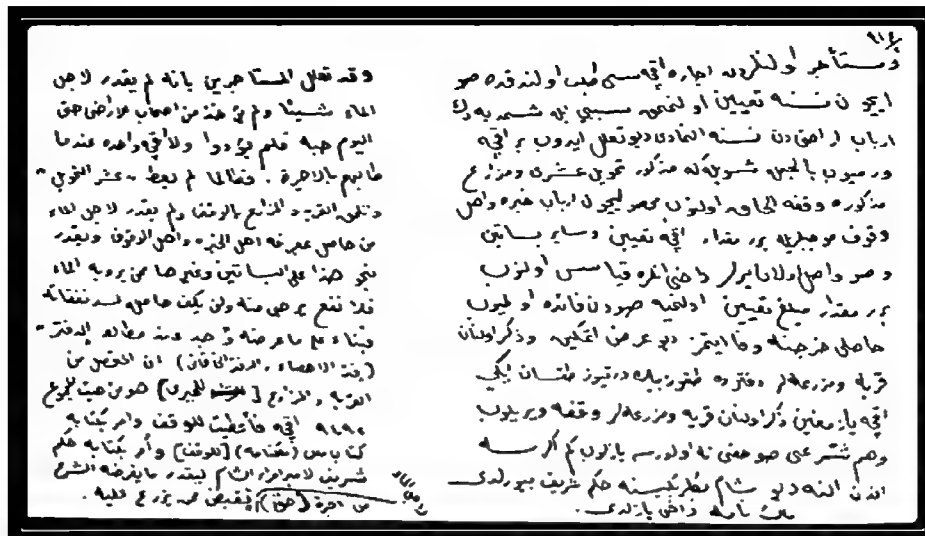 ٩١٤
ومستأجر اولنلردن اجاره اقچه سى طلب اولندقده صو
ايچون نسنه تعيين اولنممق سببى ايله شمديه دك
ارباب اراضى دن نسنه النمادى ديو تعلل ايدوب بر اقچه
ويرميوب بالجمله شويله كه مذكور تحويل عشرى ومزارع
مذكوره وقفه الحاق اولنوب محصوليچون ارباب خبره واهل
وقوف موجبلريله برر مقدار اقچه تعيين وساير بساتين
وصو واصل اولان يرلر داخى انلره قياس اولنوب
برر مقدار مبلغ تعيين اولنميه صودن فائده اولميوب
حاصلى خرجنه وفا ايتمز ديو عرض اتمكين وذكر اولنان
قريه ومزرعه لر دفترده طقوز بيك درتيوز طقسان ايكى
اقچه يازمغين ذكر اولنان قريه ومزرعه لر وقفه ويريلوب
وهم شرعى صو حقى نه اولورسه يازلوب حكم
الدن النه ديو شام بكلربكيسنه حكم شريف بيورلدى
نامه داخى يازلدى.
وقد تعلل المستأجرين بانه لم يقدر لاجل
الماء شيئا ولم يؤخذ من اصحاب الاراضى حتى
اليوم حبة فلم يؤدوا ولا اقچه واحده عندما
طالبهم بالاجرة. فطالما لم يعط عشر التحويل
وتلحق القريه والمزارع بالوقف ولم يقدر لاجل الماء
من حاصل بمعرفة اهل الخبره واهل الوقوف ويقدر
نحو هذا على البساتين وغيرها ممن يرويه الماء
فلا نفع يرجى منه ولن يكف حاصله لسد نفقاته
فبناء على ما عرضه وجد عند مطالعه الدفتر
(دفتر الاحصاء، الدفتر الخاقانى) ان المتحصل من
القريه والمزارع هو من حيث المجموع
٩٤٩٢ اقچه فأعطيت للوقف وامر بكتابه
كتاب [للوقف] وأمر بكتابه حكم
شريف لامير امراء الشام ليقدر ما يفرضه الشرع
من اجرة (حق) فيقبض ممن يزرع عليه.